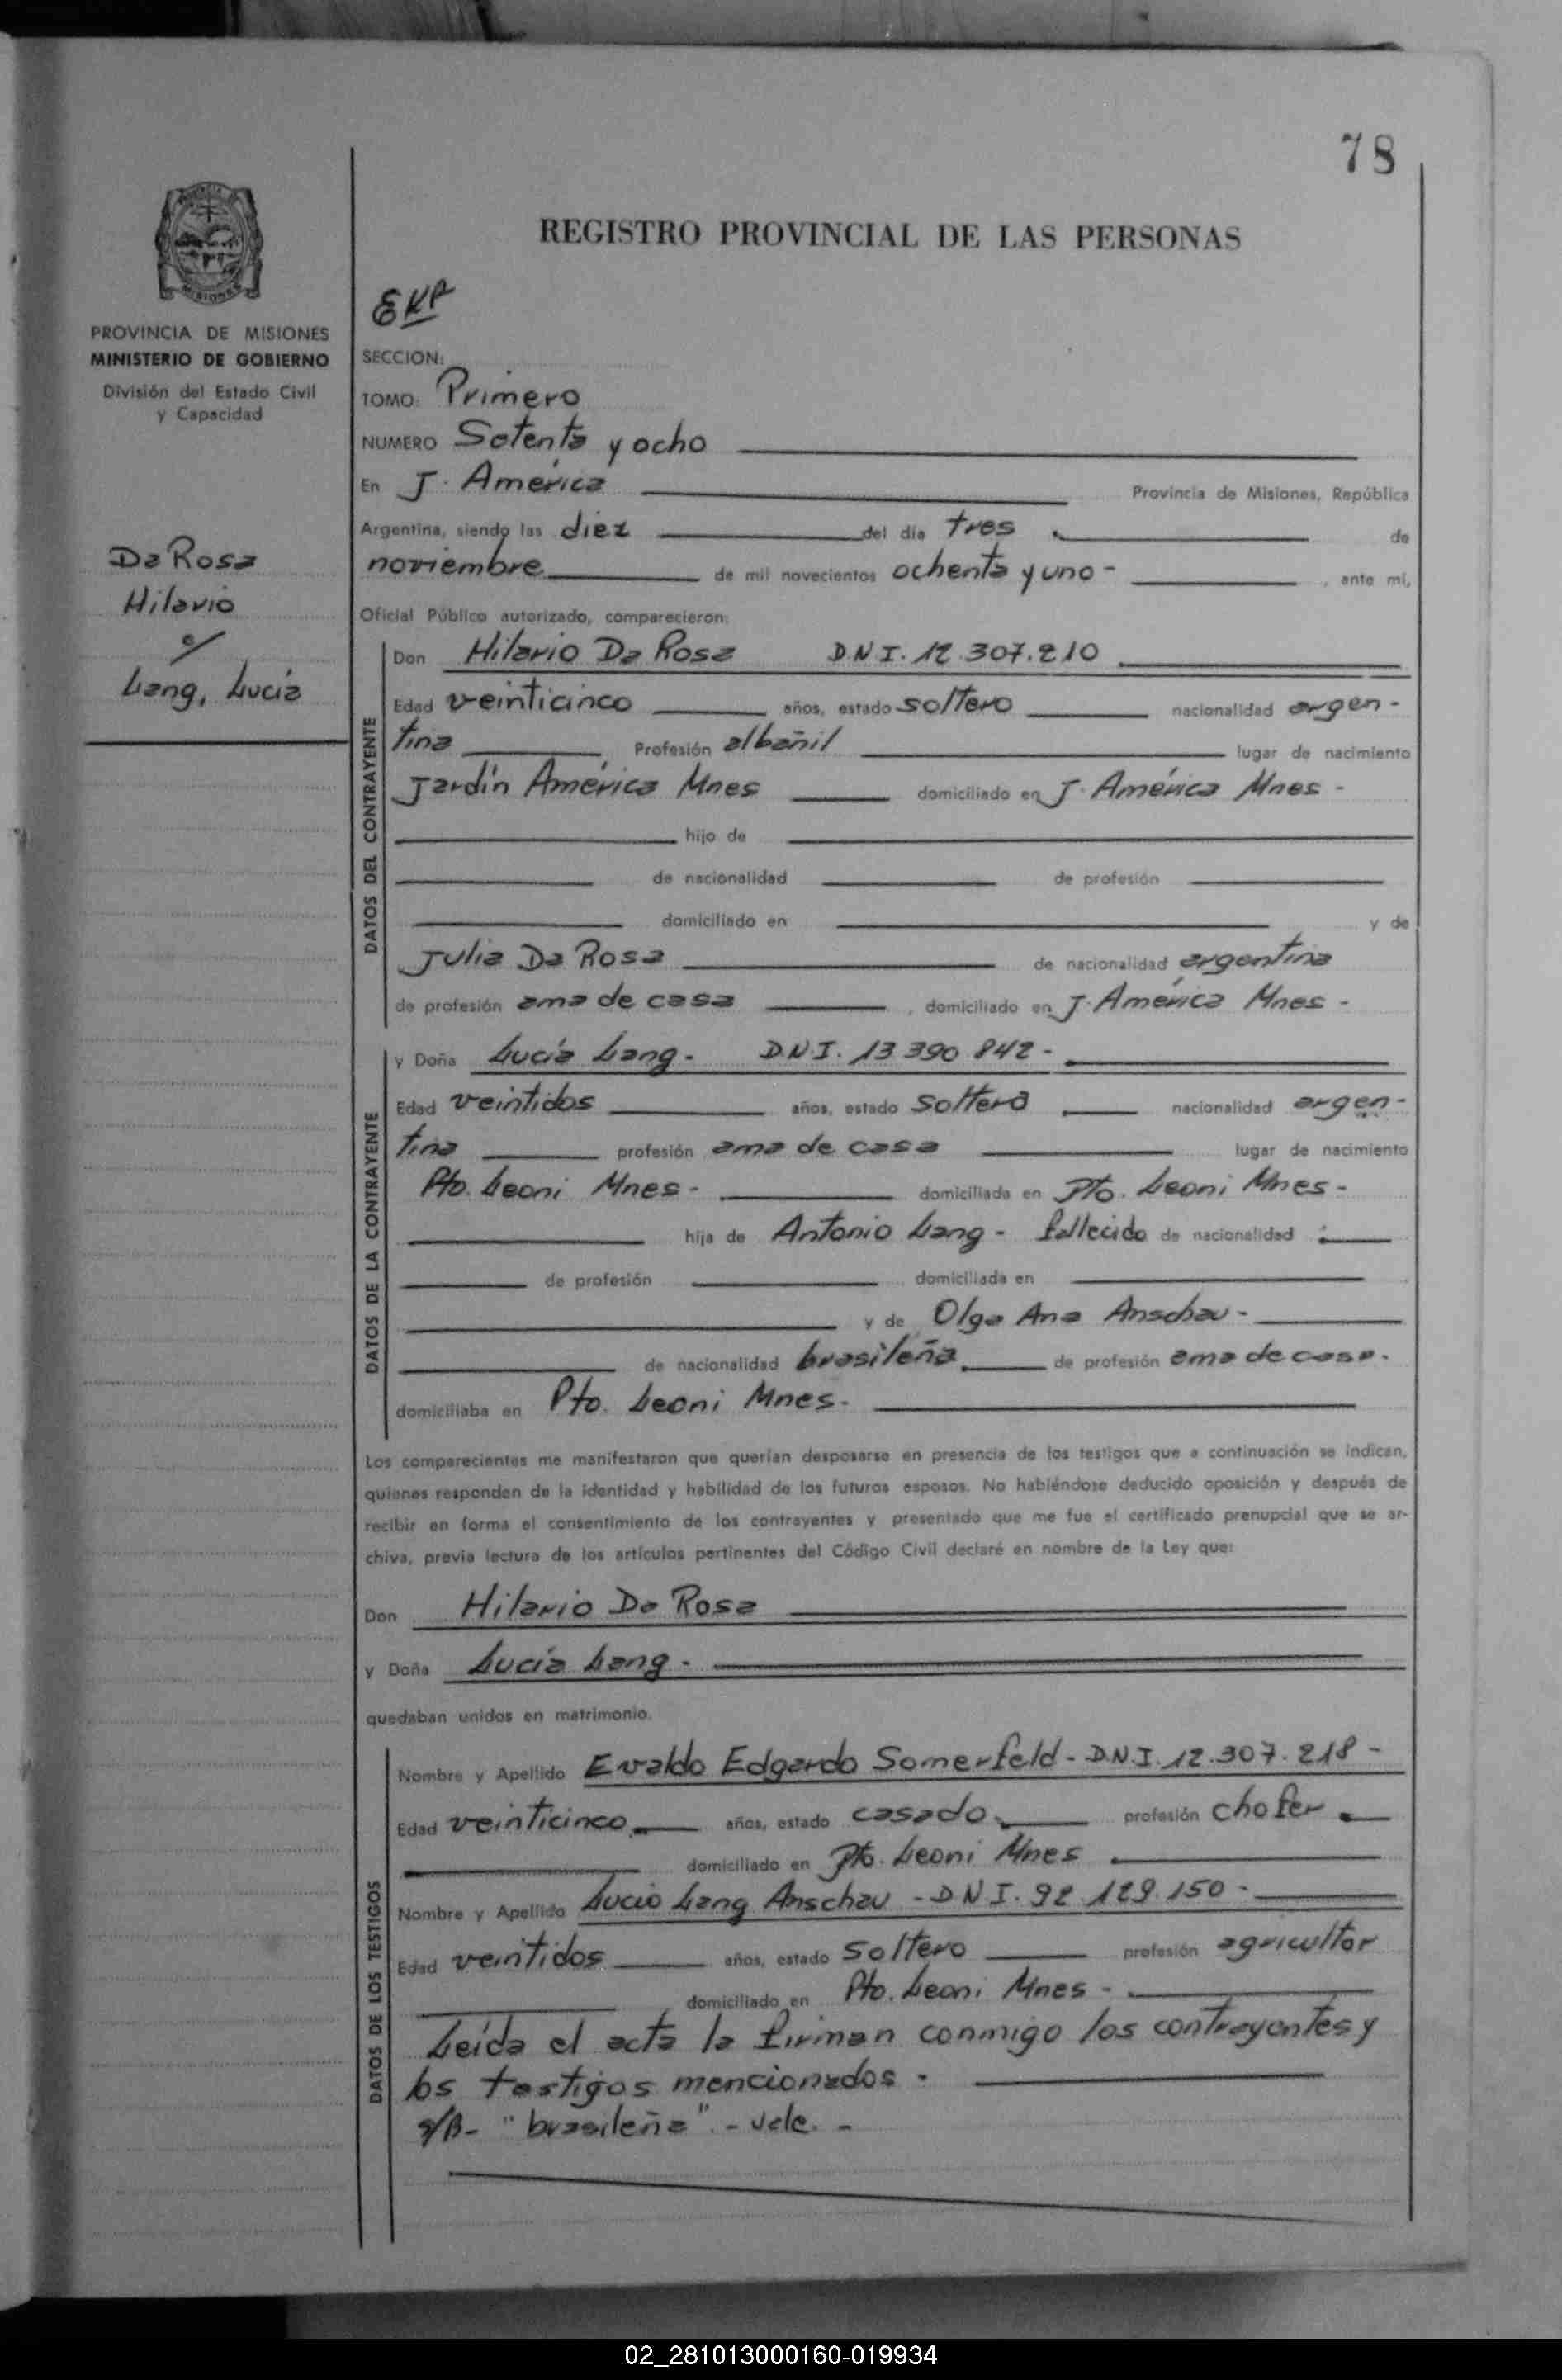 78
REGISTRO PROVINCIAL DE LAS PERSONAS
MISIONES
PROVINCIA DE MISIONES
MINISTERIO DE GOBIERNO
División del Estado Civil
y Capacidad
Da Rosa
Hilario
c/
Lang, Lucía
SECCION:
TOMO: Primero
NUMERO Setenta y ocho
En J. América Provincia de Misiones, República
Argentina, siendo las diez del día tres de
noviembre de mil novecientos ochenta y uno - , ante mí,
Oficial Público autorizado, comparecieron:
DATOS DEL CONTRAYENTE
Don Hilario Da Rosa D.N.I. 12.307.210
Edad veinticinco años, estado soltero nacionalidad argen-
tina Profesión albañil lugar de nacimiento
Jardín América Mnes domiciliado en J. América Mnes -
hijo de
de nacionalidad de profesión
domiciliado en y de
Julia Da Rosa de nacionalidad argentina
de profesión ama de casa , domiciliado en J. América Mnes -
DATOS DE LA CONTRAYENTE
y Doña Lucía Lang - D.N.I. 13 390 842 -
Edad veintidos años, estado soltera nacionalidad argen-
tina profesión ama de casa lugar de nacimiento
Pto. Leoni Mnes - domiciliada en Pto. Leoni Mnes -
hija de Antonio Lang - fallecido de nacionalidad
de profesión domiciliada en
y de Olga Ana Anschau -
de nacionalidad brasileña de profesión ama de casa.
domiciliaba en Pto. Leoni Mnes -
Los comparecientes me manifestaron que querían desposarse en presencia de los testigos que a continuación se indican,
quienes responden de la identidad y habilidad de los futuros esposos. No habiéndose deducido oposición y después de
recibir en forma el consentimiento de los contrayentes y presentado que me fue el certificado prenupcial que se ar-
chiva, previa lectura de los artículos pertinentes del Código Civil declaré en nombre de la Ley que:
Don Hilario Da Rosa
y Doña Lucía Lang -
quedaban unidos en matrimonio.
DATOS DE LOS TESTIGOS
Nombre y Apellido Evaldo Edgardo Somerfeld - D.N.I. 12.307.218 -
Edad veinticinco años, estado casado profesión chofer
domiciliado en Pto. Leoni Mnes
Nombre y Apellido Lucio Lang Anschau - D N I. 92 129.150 -
Edad veintidos años, estado soltero profesión agricultor
domiciliado en Pto. Leoni Mnes -
Leída el acta la firman conmigo los contrayentes y
los testigos mencionados -
s/B- "brasileña" - Vale. -
02_281013000160-019934